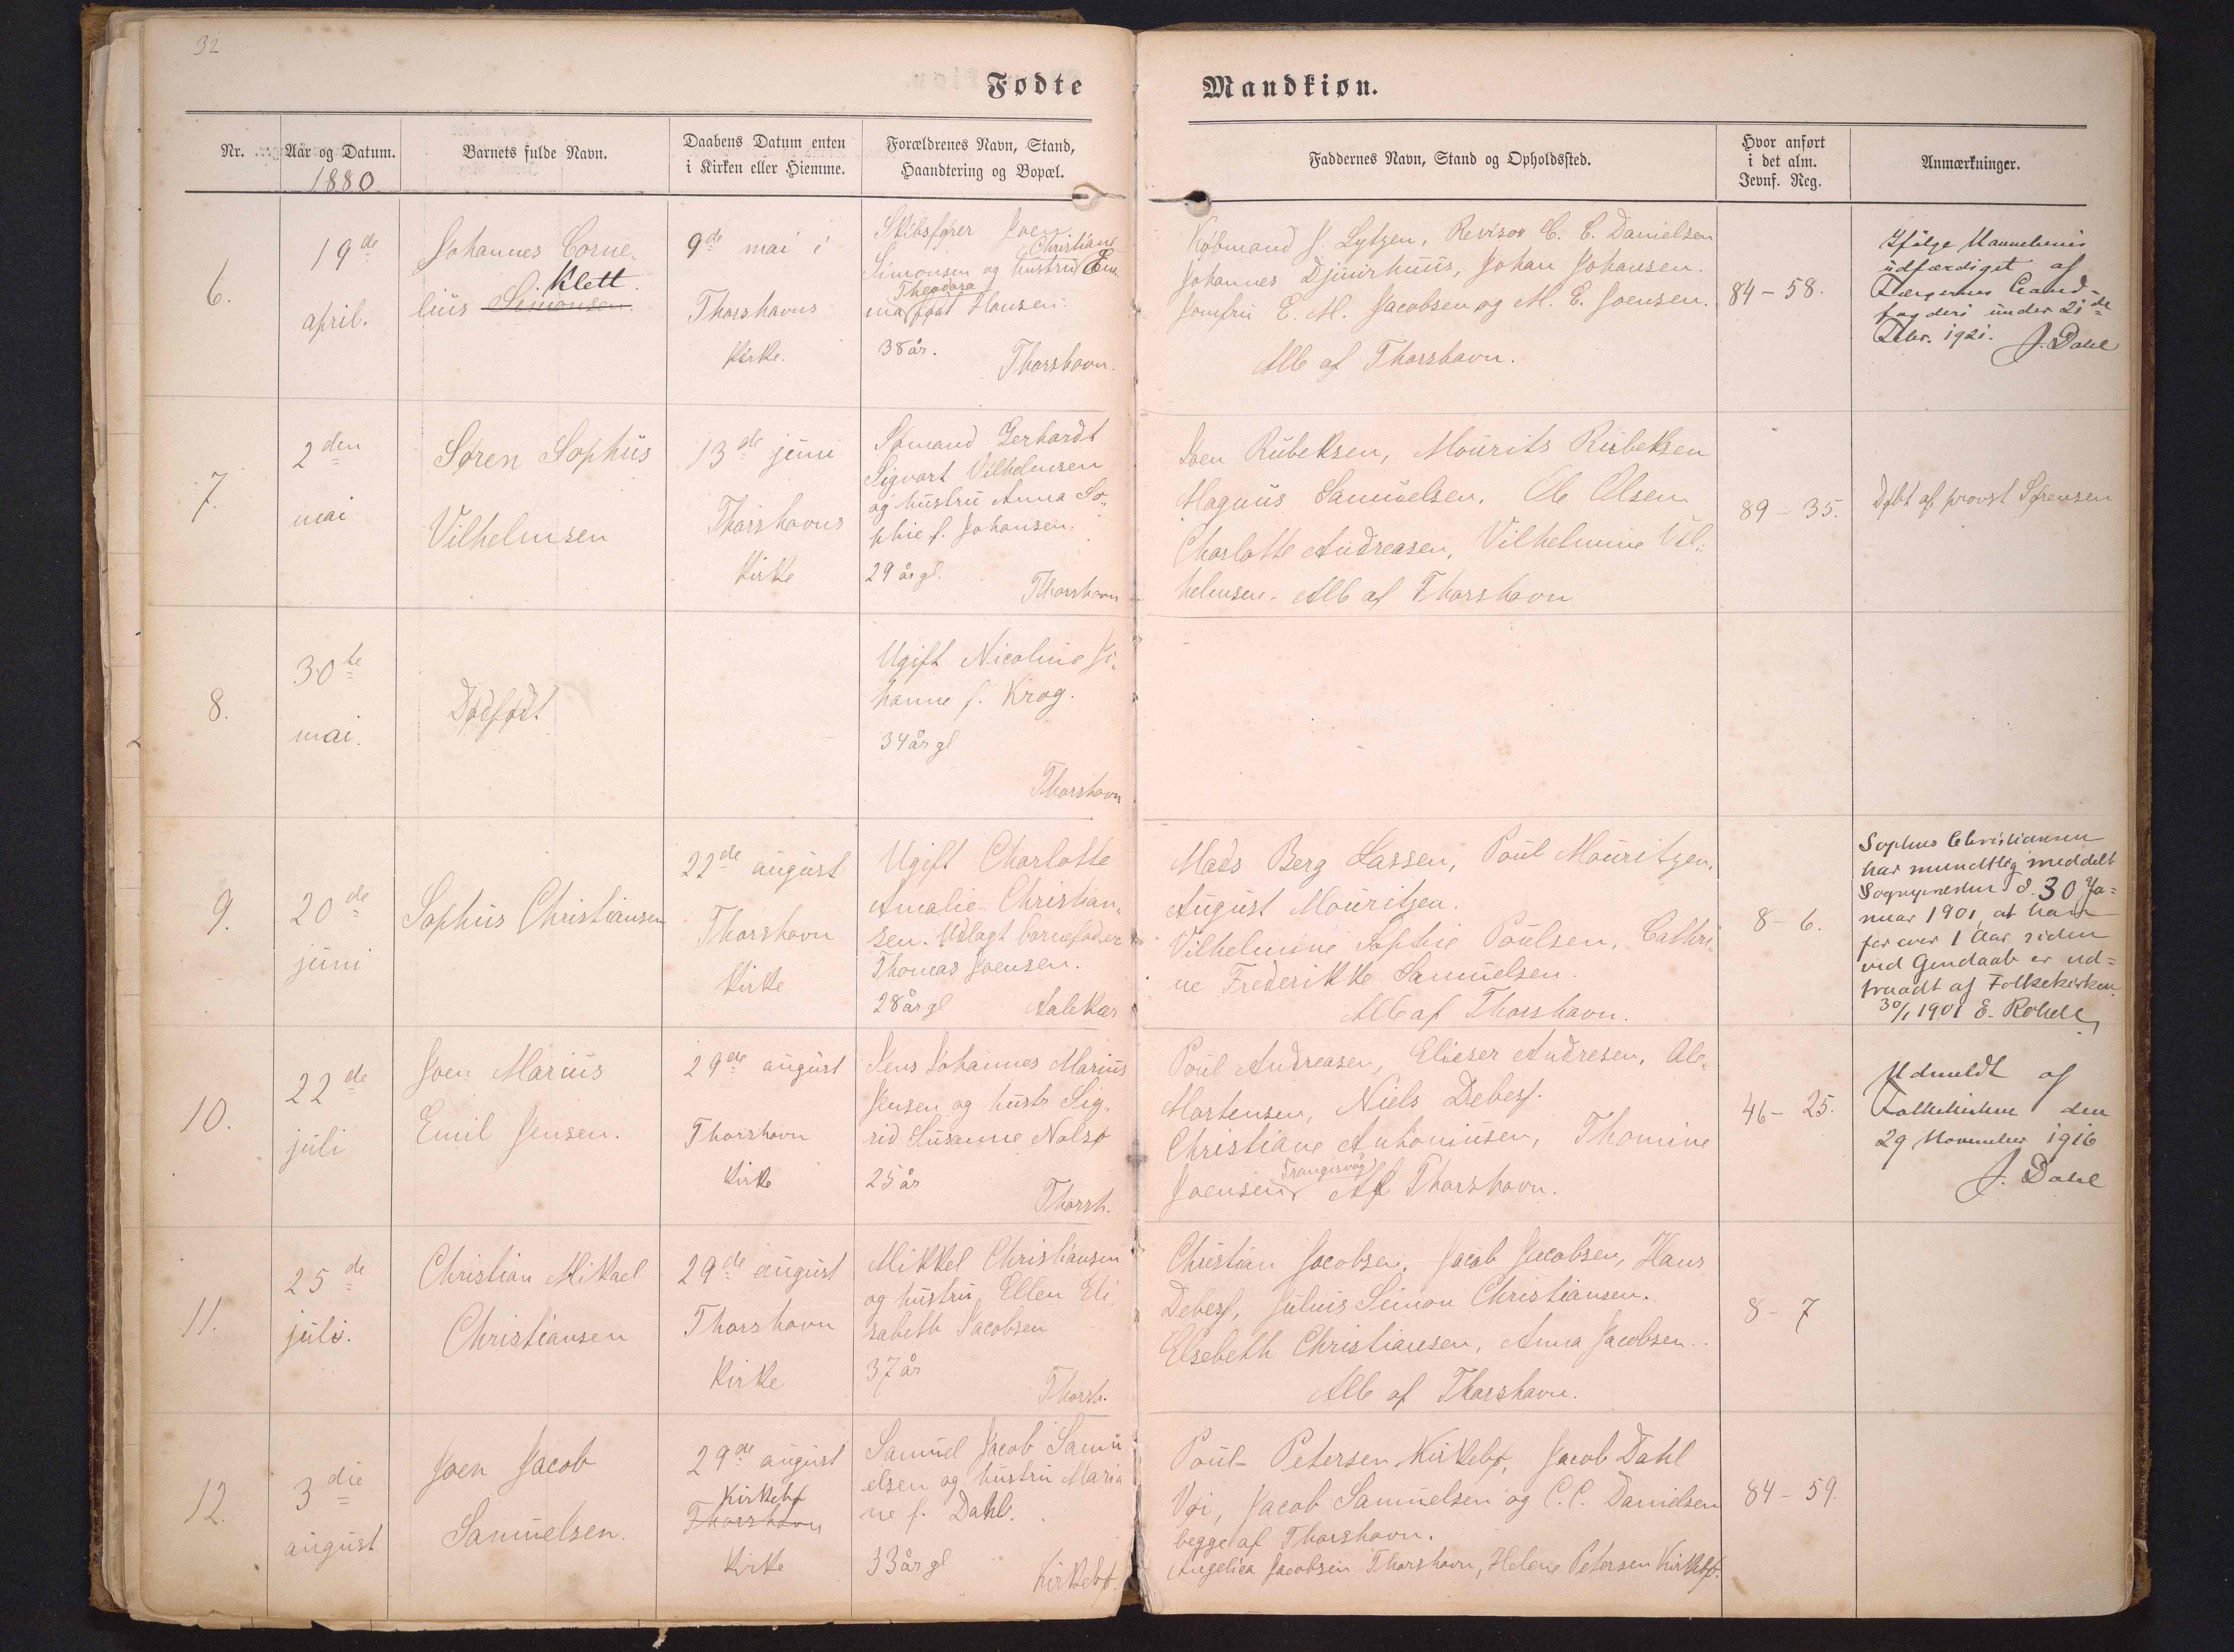 32
Fødte
Mandkiøn.
Nr.
Aar og Datum.
1880
Barnets fulde Navn.
Daabens Datum enten
i Kirken eller Hiemme.
Forældrenes Navn, Stand,
Haandtering og Bopæl.
Faddernes Navn, Stand og Opholdssted.
Hvor anført
i det alm.
Jevnf. Reg.
Anmærkninger.
6.
19de
april.
Johannes Corne-
Klett.
lius Simonsen
9de mai i
Thorshavns
Kirke.
Skibsfører Joen
Christiane
Simonsen og hustru Em-
Theodora
ma født Hansen
38 år.
Thorshavn.
Købmand J. Lützen, Revisor C. C. Danielsen
Johannes Djuurhuus, Johan Johansen.
Jomfru E. M. Jacobsen og M. E. Joensen.
Alle af Thorshavn.
84 - 58.
Ifølge Navnebevis
udfærdiget af
Færøernes Land-
fogderi under 21de
Febr. 1921. J. Dahl
7.
2den
mai
Søren Sophus
Vilhelmsen
13de juni
Thorshavns
Kirke
Sømand Gerhardt
Sigvart Vilhelmsen
og hustru Anna So-
phie f. Johansen.
29 år gl.
Thorshavn
Joen Rubeksen, Mourits Rubeksen
Magnus Samuelsen, Ole Olsen
Charlotte Andreasen, Vilhelmine Vil-
helmsen. Alle af Thorshavn
89 - 35.
Døbt af provst Sørensen
8.
30te
mai.
Dødfødt
Ugift Nicoline Jo-
hanne f. Krog.
34 år gl
Thorshavn
9.
20de
juni
Sophus Christiansen
22de august
Thorshavn
Kirke
Ugift Charlotte
Amalie Christian-
sen. Udlagt barnefader
Thomas Joensen.
28 år gl Aalekær
Mads Berg Lassen, Poul Mouritzen,
August Mouritzen.
Vilhelmine Sophie Poulsen, Cathri-
ne Frederikke Samuelsen.
Alle af Thorshavn.
8 - 6.
Sophus Christiansen
har mundtlig meddelt
Sognepræsten d. 30 Ja-
nuar 1901, at han
for over 1 Aar siden
ved Gendaab er ud-
traadt af Folkekirken
30/1 1901 E. Rohde
10.
22de
juli
Joen Marius
Emil Jensen.
29de august
Thorshavn
Kirke
Jens Johannes Marius
Jensen og hustr Sig-
rid Susanne Nolsø
25 år
Thorsh.
Poul Andreasen, Elieser Andresen, Ole
Mortensen, Niels Debes.
Christiane Antoniusen, Thomine
Trangisvåg
Joensen, Af Thorshavn.
46 - 25.
Udmeldt af
Folkekirken den
29 November 1916
J. Dahl
11.
25de
juli.
Christian Mikael
Christiansen
29de august
Thorshavn
Kirke
Mikkel Christiansen
og hustru Ellen Eli-
sabeth Jacobsen
37 år
Thorsh.
Christian Jacobsen, Jacob Jacobsen, Hans
Debes, Julius Simon Christiansen.
Elsebeth Christiansen, Anna Jacobsen.
Alle af Thorshavn.
8 - 7
12.
3die
august
Joen Jacob
Samuelsen.
29de august
Kirkebø
Thorshavn
Kirke
Samuel Jacob Samu-
elsen og hustru Maria-
ne f. Dahl.
33 år gl
Kirkebø.
Poul Petersen Kirkebø, Jacob Dahl
Vøi, Jacob Samuelsen og C. C. Danielsen
begge af Thorshavn.
Angelica Jacobsen Thorshavn, Helene Petersen Kirkebø.
84 - 59.